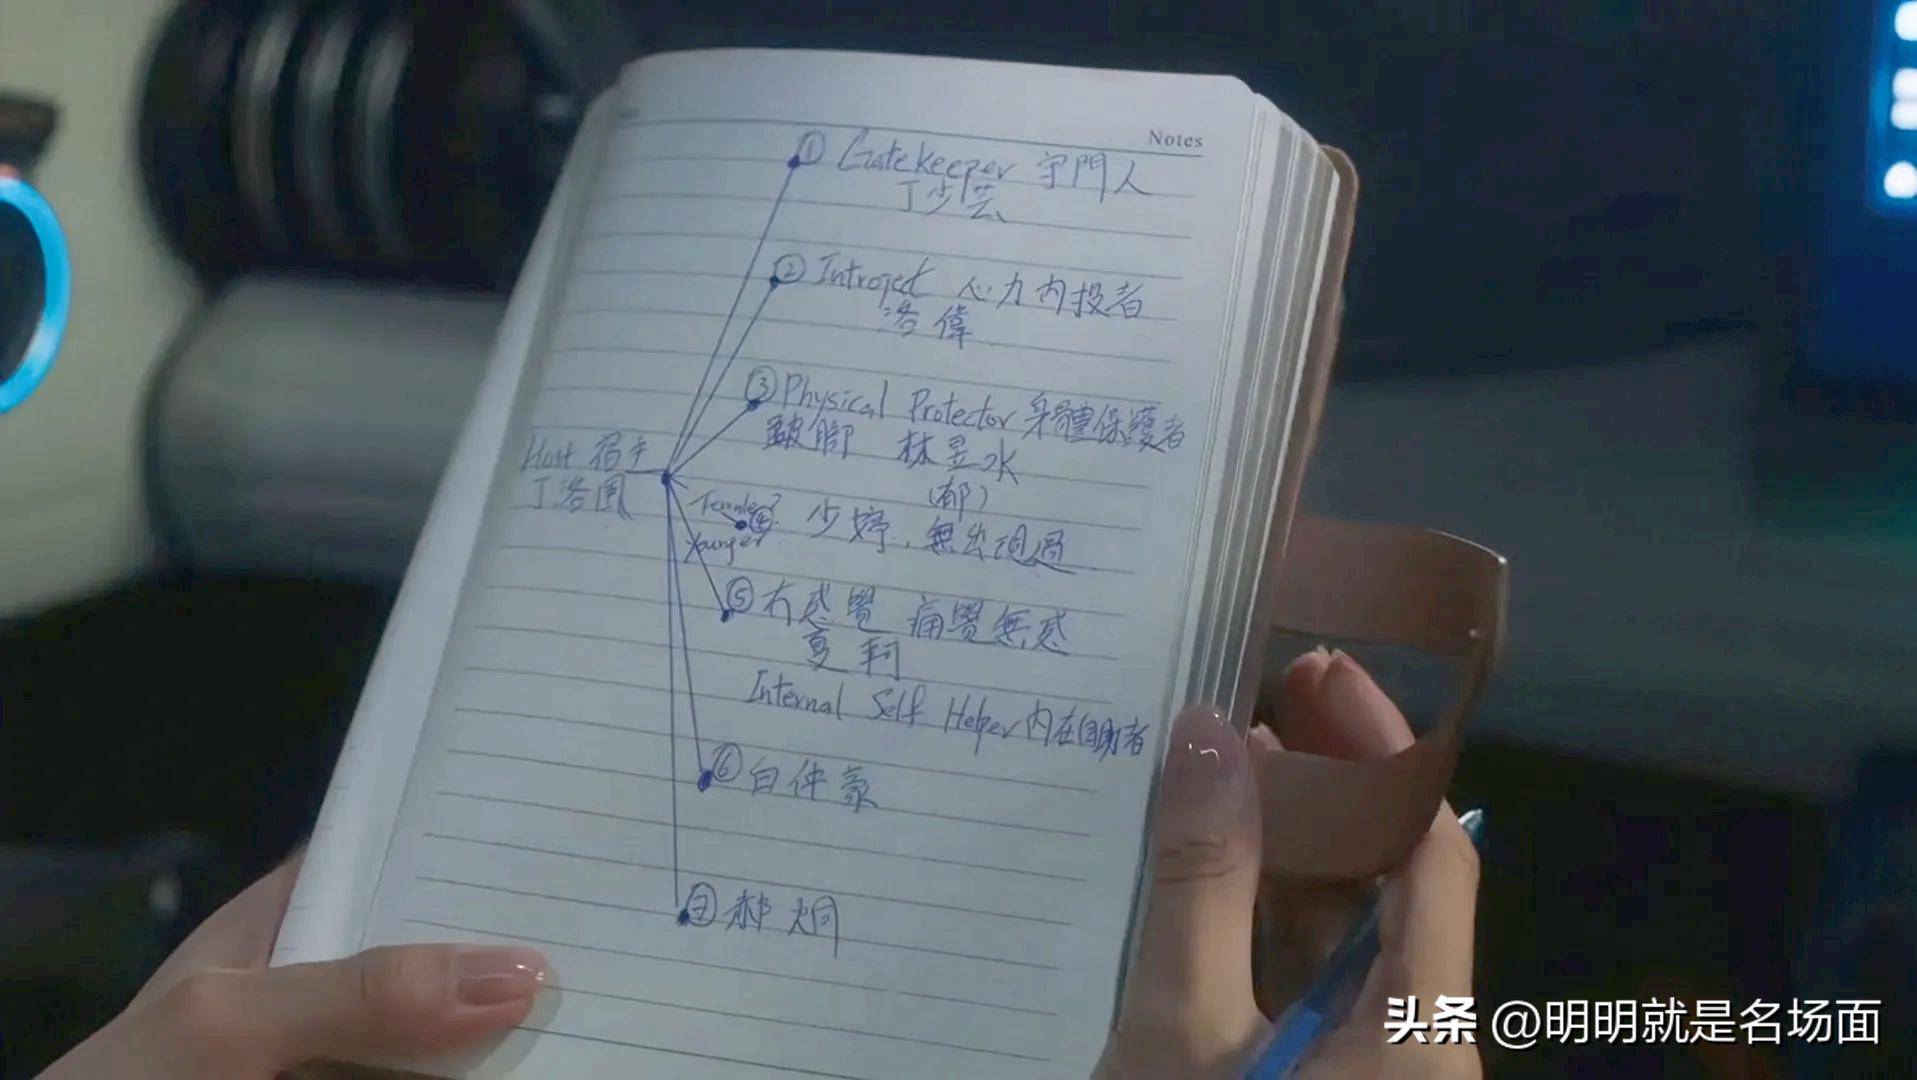 Notes
① Gatekeeper 守門人
丁少芸
② Introject 心力内投者
洛偉
③ Physical Protector 身體保護者
跛脚 林昱水
(都)
Host 宿主
丁洛風
Female?
④ 少婷, 無出現過
Younger
⑤ 冇感覺 痛覺無感
夏軻
Internal Self Helper 内在自助者
⑥ 白仲豪
⑦ 郝炯
头条 @明明就是名场面